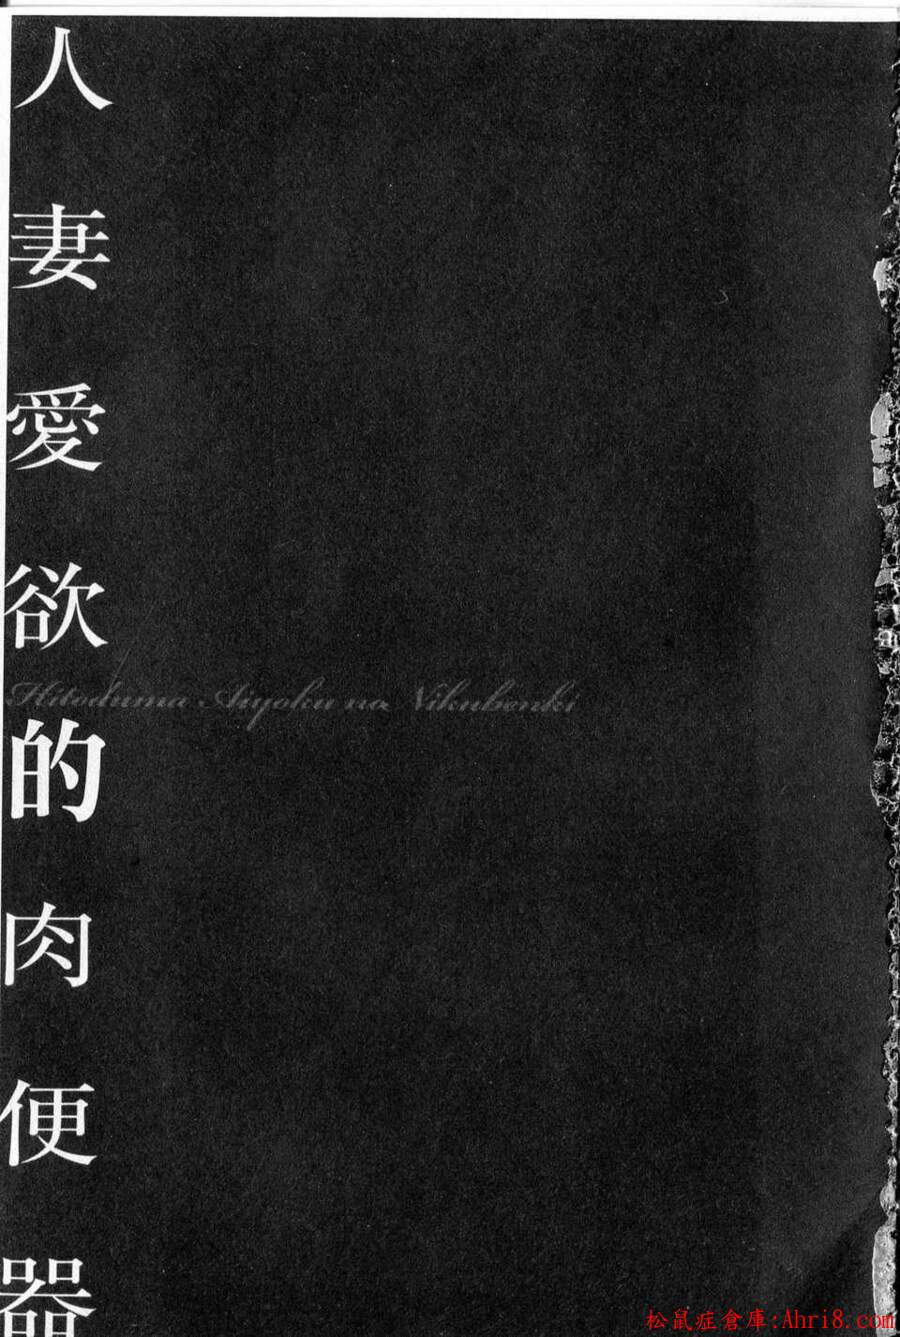 人妻愛欲的肉便器
Hitoduma Aiyoku no Nikubenki
松鼠症倉庫:Ahri8.com